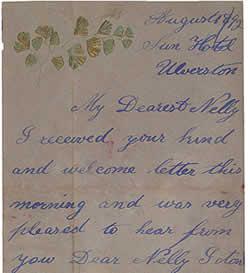 August
Sun Hotel
Ulverston
My Dearest Nelly
I received your kind
and welcome letter this
morning and was very
pleased to hear from
you Dear Nelly I